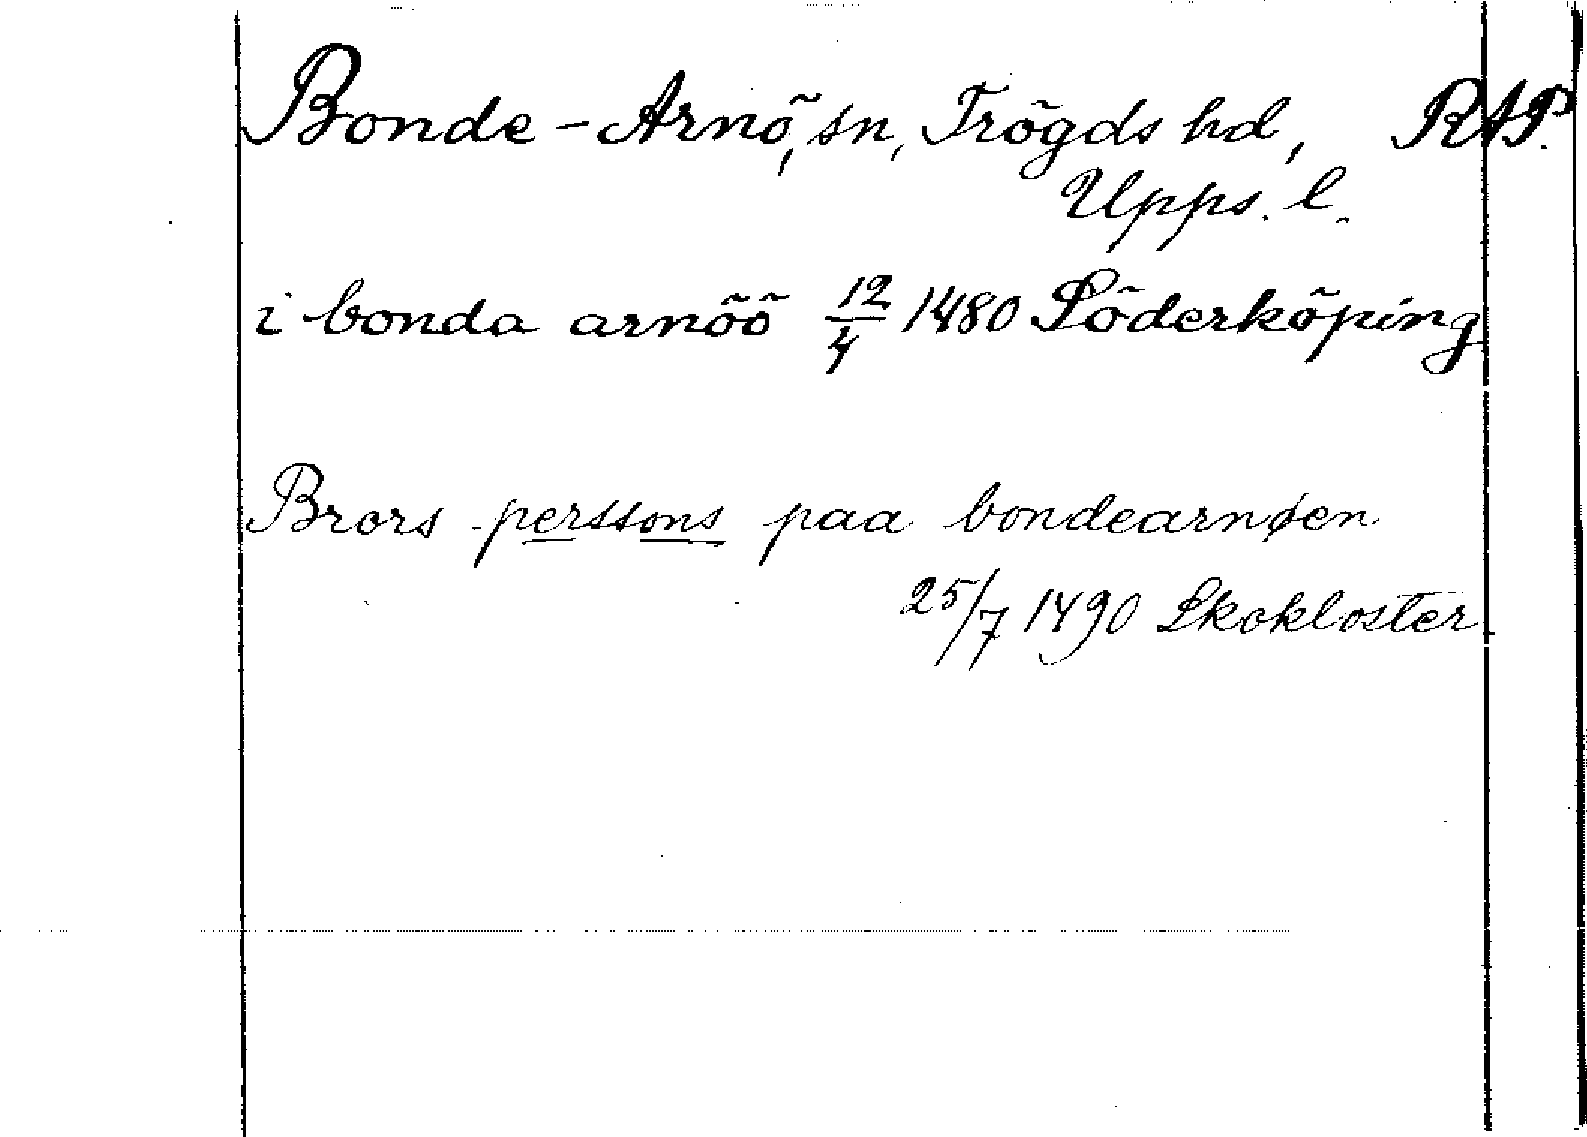 Bonde-Arnö, sn, Trögds hd, RAP.
Upps. l.
i bonda arnöö 12/4 1480 Söderköping
Brors perssons paa bondearnøen
25/7 1490 Skokloster